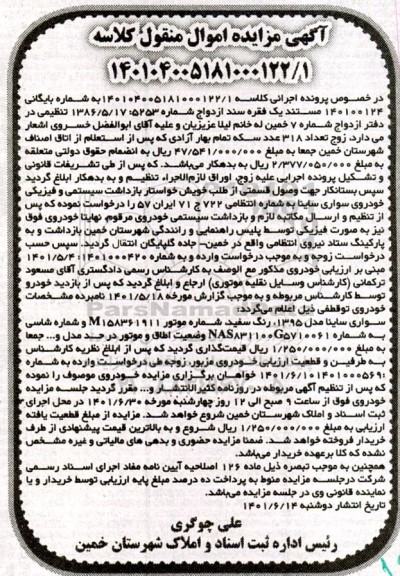 آگهی مزایده اموال منقول کلاسه
۱۴۰۱۰۴۰۰۵۱۸۱۰۰۰۱۲۲/۱
در خصوص پرونده اجرائی کلاسه ۱۴۰۱۰۴۰۰۵۱۸۱۰۰۰۱۲۲/۱ به شماره بایگانی
۱۴۰۱۰۰۱۲۴ مستند یک فقره سند ازدواج شماره ۵۲۵۳-۱۳۸۶/۵/۱۷ تنظیمی در
دفتر ازدواج شماره ۷ خمین له خانم لیلا عزیزیان و علیه آقای ابوالفضل خسروی اشعار
می دارد، زوج تعداد ۳۱۸ عدد سکه تمام بهار آزادی که پس از استعلام از اتاق اصناف
شهرستان خمین جمعا به مبلغ ۴۷/۵۴۱/۰۰۰/۰۰۰ ریال به انضمام حقوق دولتی متعلقه
به مبلغ ۲/۳۷۷/۰۵۰/۰۰۰ ریال به بدهکار می‌باشد. که پس از طی تشریفات قانونی
و تشکیل پرونده اجرایی علیه زوج، اوراق لازم‌الاجراء تنظیم و به بدهکار ابلاغ گردید
سپس بستانکار جهت وصول قسمتی از طلب خویش خواستار بازداشت سیستمی و فیزیکی
خودروی سواری ساینا به شماره انتظامی ۷۲۲ ج ۷۱ ایران ۵۷ را درخواست نموده که پس
از تنظیم و ارسال مکاتبه لازم و بازداشت سیستمی خودروی مرقوم، نهایتا خودروی فوق
نیز به صورت فیزیکی توسط پلیس راهنمایی و رانندگی شهرستان خمین بازداشت و به
پارکینگ ستاد نیروی انتظامی واقع در خمین- جاده گلپایگان انتقال گردید. سپس حسب
درخواست زوجه و به موجب درخواست وارده و به شماره ۱۴۰۱۰۰۰۴۲۰-۱۴۰۱/۵/۴
مبنی بر ارزیابی خودروی مذکور مع الوصف به کارشناس رسمی دادگستری آقای مسعود
ترکمانی (کارشناس وسایل نقلیه موتوری) ارجاع و ابلاغ گردید که پس از بازدید خودرو
توسط کارشناس مربوطه و به موجب گزارش مورخه ۱۴۰۱/۵/۱۸ نامبرده مشخصات
خودروی توقیفی ذیل اعلام می‌گردد:
سواری ساینا مدل ۱۳۹۵، رنگ سفید، شماره موتور M۱۵۸۳۶۱۹۱۱ و شماره شاسی
به شماره NAS۸۳۱۱۰۰G۵۷۱۰۰۶۱ وضعیت اطاق و موتور در حد مدل و... جمعا
به مبلغ ۱/۲۵۰/۰۰۰/۰۰۰ ریال قیمت‌گذاری گردید که پس از ابلاغ نظریه کارشناس
به طرفین و قطعیت ارزیابی خودروی مزبور، زوجه طی درخواست وارده به شماره
۱۴۰۱/۶/۱۰-۱۴۰۱۰۰۰۵۶۹ خواهان برگزاری مزایده خودروی موصوف را نموده
که پس از تنظیم آگهی مربوطه در روزنامه کثیرالانتشار و... مقرر گردید جلسه مزایده
خودروی فوق از ساعت ۹ صبح الی ۱۲ روز چهارشنبه مورخه ۱۴۰۱/۶/۳۰ در محل اجرای
ثبت اسناد و املاک شهرستان خمین شروع خواهد شد. مزایده از مبلغ قطعیت یافته
ارزیابی به مبلغ ۱/۲۵۰/۰۰۰/۰۰۰ ریال شروع و به بالاترین قیمت پیشنهادی از طرف
خریدار فروخته خواهد شد. ضمنا مزایده حضوری و بدهی های مالیاتی و غیره مشخص
نشده که کلا برعهده خریدار می‌باشد.
همچنین به موجب تبصره ذیل ماده ۱۲۶ اصلاحیه آیین نامه مفاد اجرای اسناد رسمی
شرکت درجلسه مزایده منوط به پرداخت ده درصد مبلغ پایه ارزیابی توسط خریدار و یا
نماینده قانونی وی در جلسه مزایده می‌باشد.
تاریخ انتشار دوشنبه ۱۴۰۱/۶/۱۴
علی چوگری
رئیس اداره ثبت اسناد و املاک شهرستان خمین